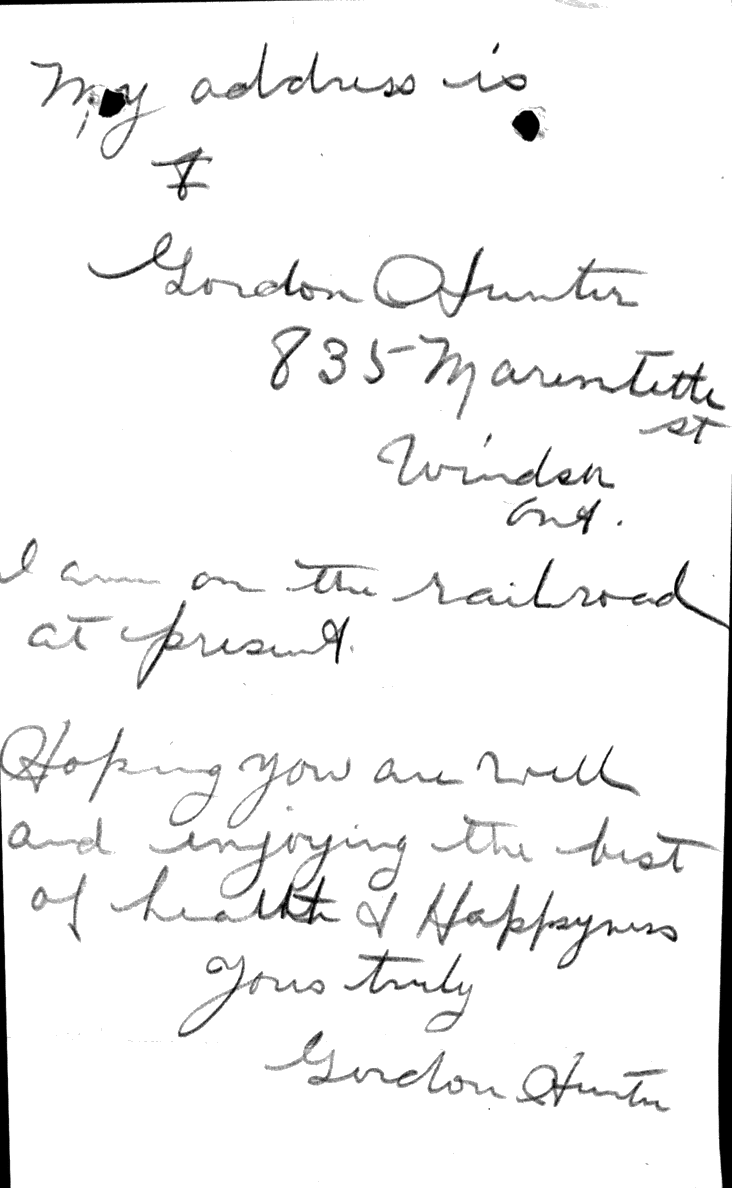 My address is
Gordon Hunter
835 Marentette
st
Windsor
Ont.
I am on the railroad
at present.
Hoping you are well
and enjoying the best
of health & Happyness
yours truly
Gordon Hunter